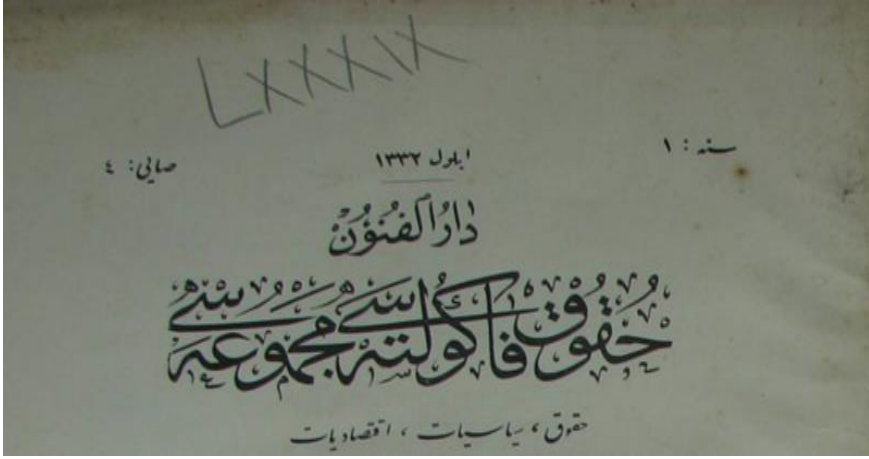 LXXXIX
سنه : ١ ايلول ١٣٣٢ صايى : ٤
دار الفنون
حقوق فاكولته سى مجموعه سى
حقوق ، سياسيات ، اقتصاديات